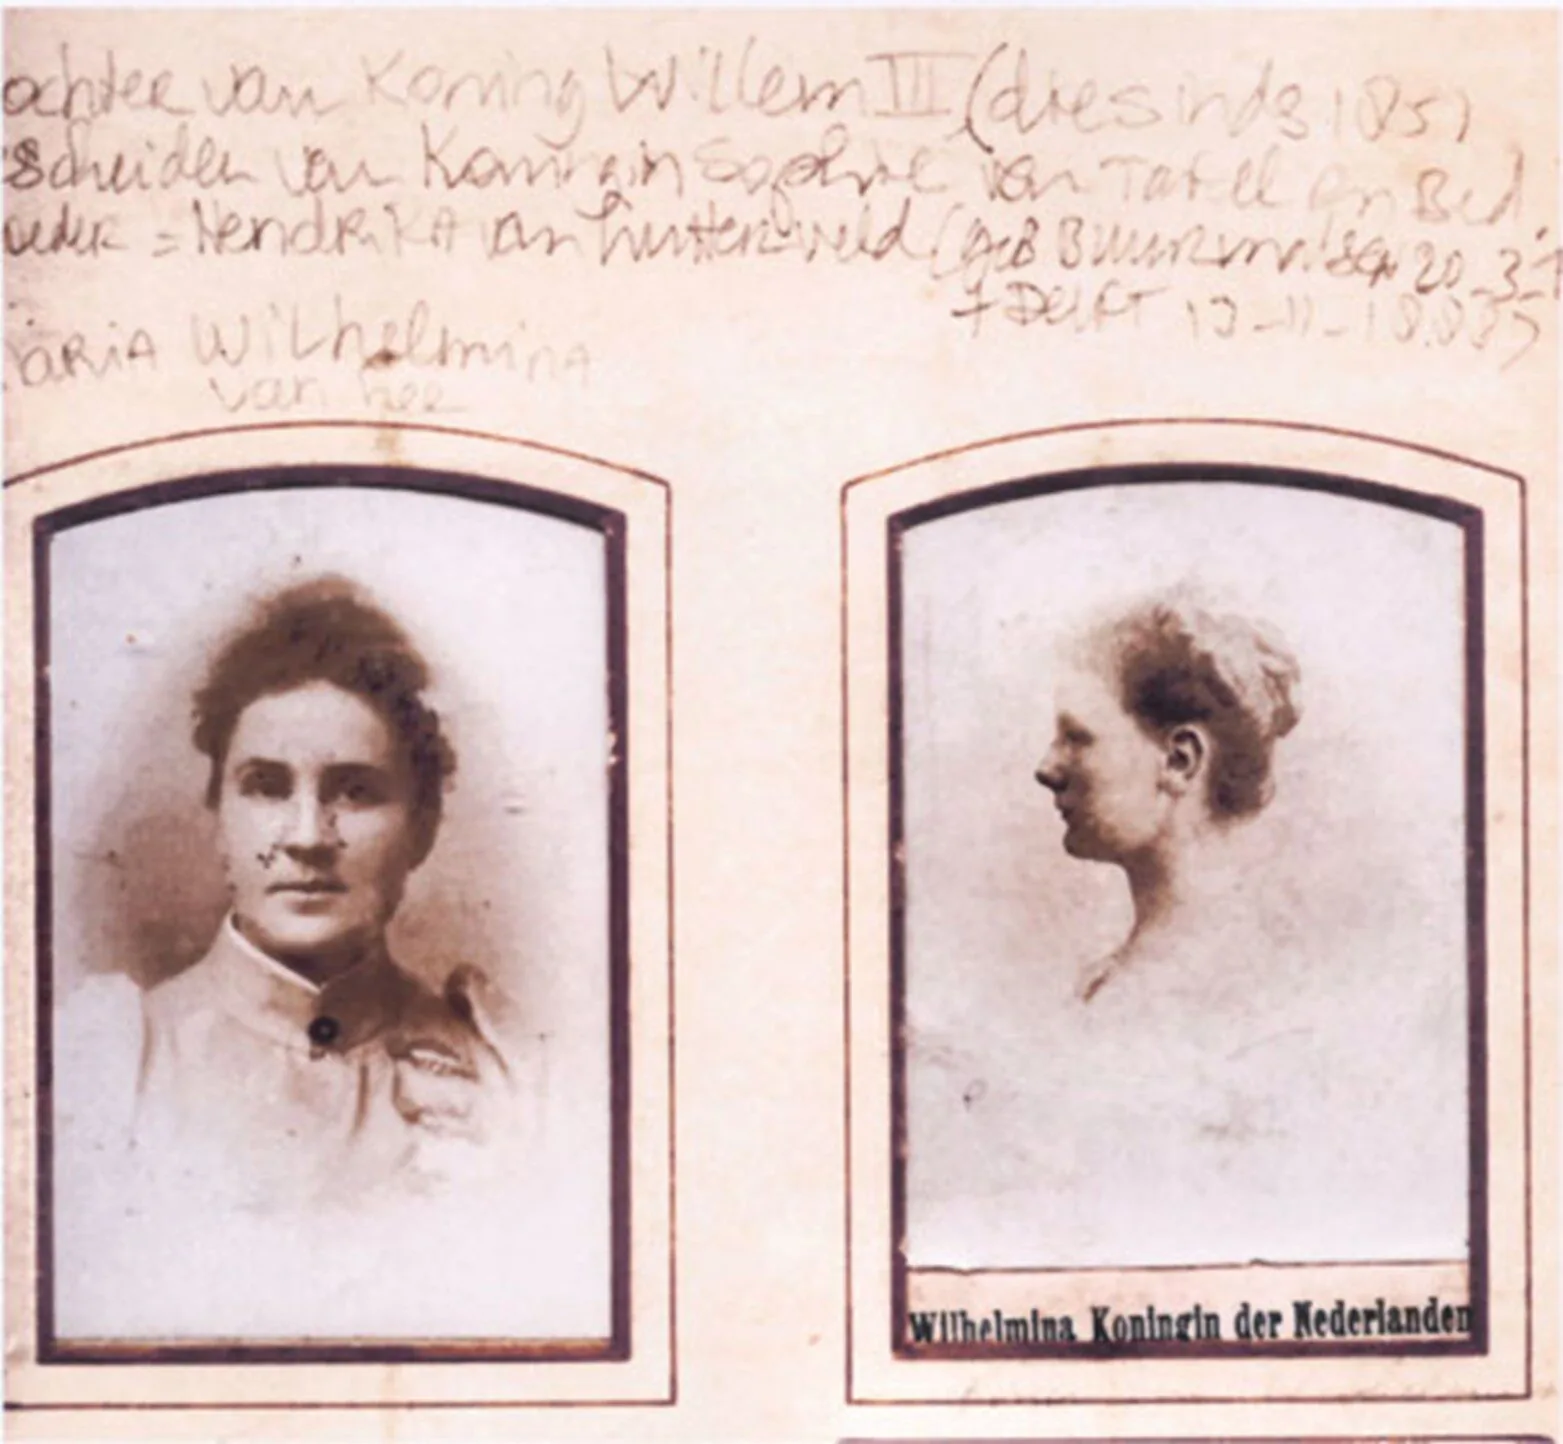 ochter van Koning Willem III (die sinds 1851
scheiden van Koningin Sophie van Tafel en Bed.
oeder = Hendrika van Lutterveld (geb 20-3-1
† Delft 13-11-1883)
aria Wilhelmina
van hee
Wilhelmina Koningin der Nederlanden